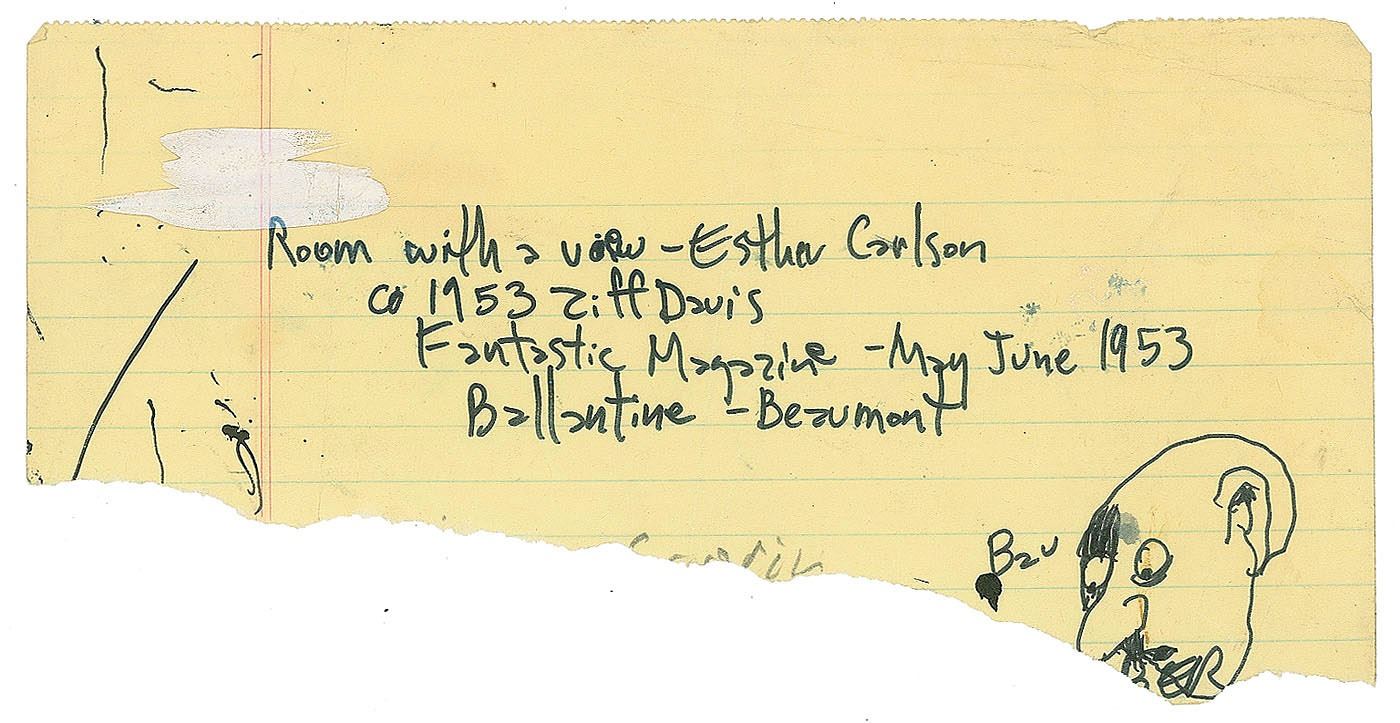 Room with a view - Esther Carlson
co 1953 Ziff Davis
Fantastic Magazine - May June 1953
Ballantine - Beaumont
Bau